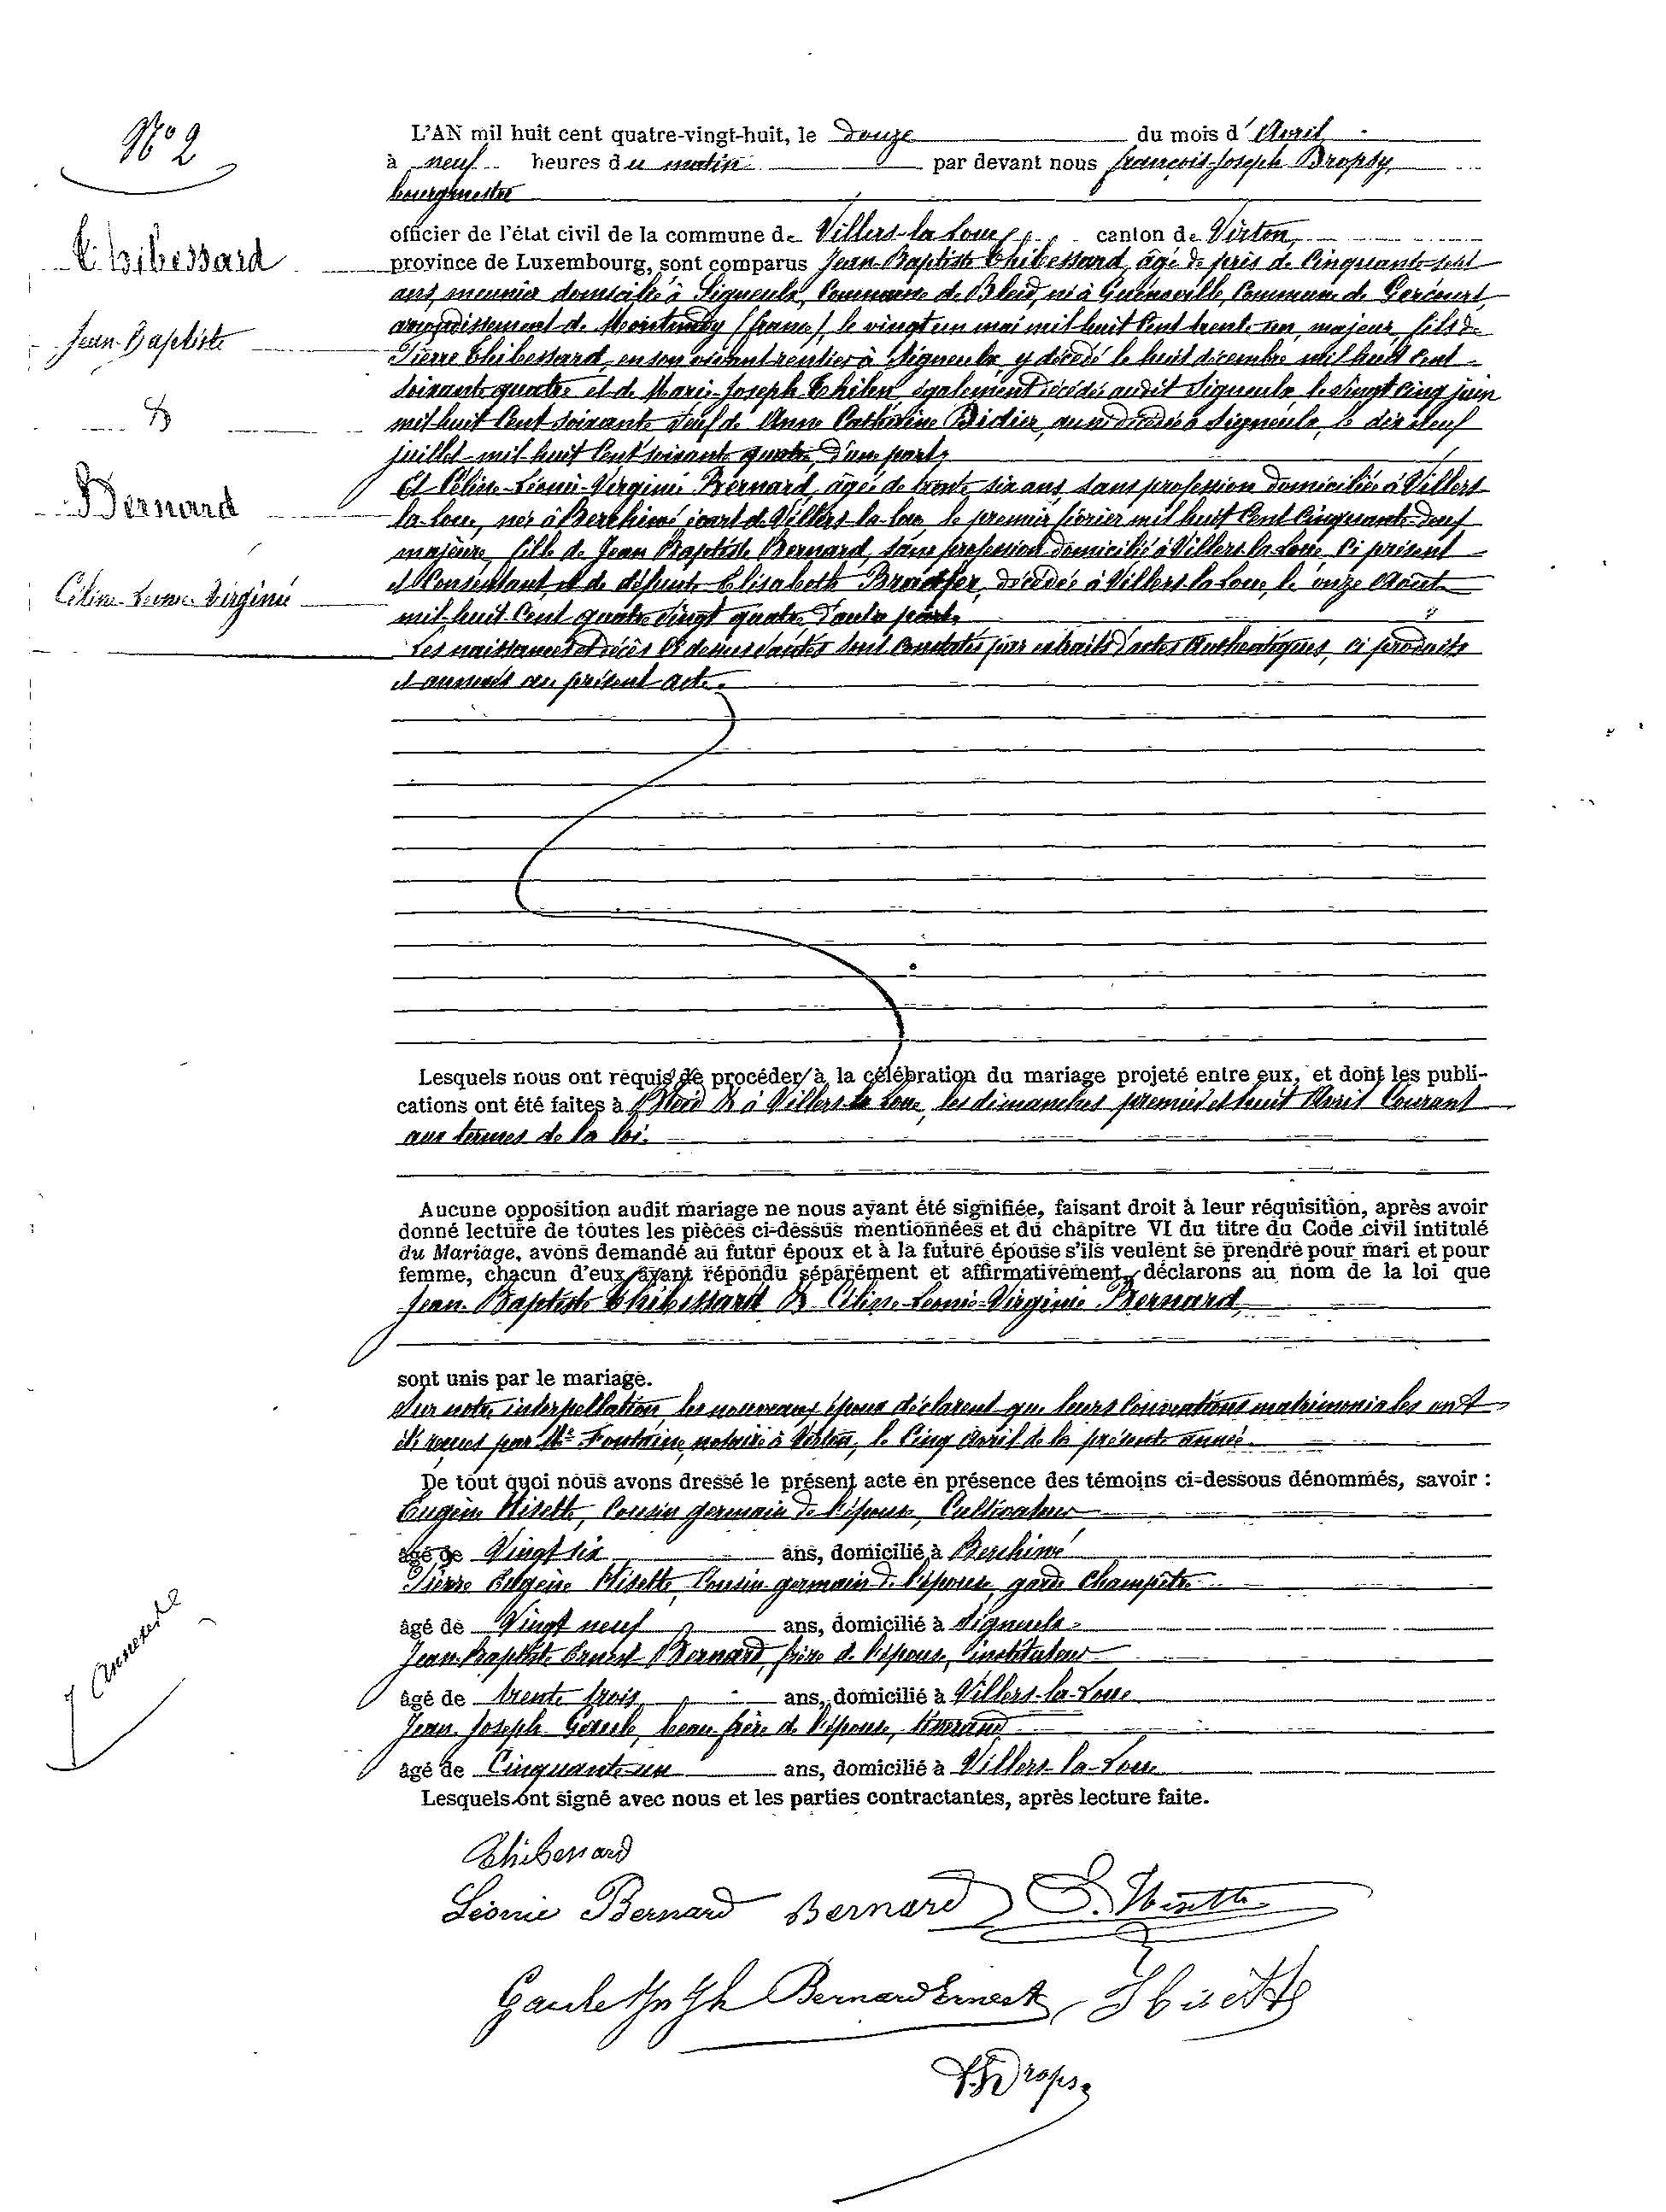 N° 2
L'AN mil huit cent quatre-vingt-huit, le douze du mois d' Avril
à neuf heures du matin par devant nous françois-Joseph Dropsy,
bourgmestre
officier de l'état civil de la commune de Villers-la-Loue, canton de Virton,
province de Luxembourg, sont comparus Jean-Baptiste Thibessard, âgé de près de Cinquante-sept
ans, meunier domicilié à Signeulx, Commune de Bleid, né à Gercourt,
arrondissement de Montmédy (france), le vingt un mai mil huit Cent trente un, majeur, fils de
Pierre Thibessard, en son vivant rentier à Signeulx, y décédé le huit décembre mil huit Cent
soixante quatre et de Marie-Joseph également décédée audit Signeulx, le vingt Cinq juin
mil huit Cent soixante veuf de Anne Catherine Didier, aussi décédée à Signeulx, le dix neuf
juillet mil huit Cent soixante quatre, d'une part,
Et Céline-Léonie-Virginie Bernard, âgée de trente six ans, sans profession domiciliée à Villers-
la-Loue, née à Berchiwé écart de Villers-la-Loue le premier février mil huit Cent Cinquante-deux
majeure, fille de Jean Baptiste Bernard, sans profession domicilié à Villers-la-Loue, ci présent
et Consentant, et de défunte Elisabeth décédée à Villers-la-Loue, le onze Août
mil-huit-Cent quatre vingt quatre, d'autre part.
Les naissances et décès ci dessus datés sont constatés par extraits d'actes Authentiques, ci produits
et annexés au présent acte.
Thibessard
Jean-Baptiste
&
Bernard
Céline-Léonie-Virginie
Lesquels nous ont requis de procéder à la célébration du mariage projeté entre eux, et dont les publi-
cations ont été faites à Bleid & à Villers-la-Loue, les dimanches premier et huit Avril Courant
aux termes de la loi.
Aucune opposition audit mariage ne nous ayant été signifiée, faisant droit à leur réquisition, après avoir
donné lecture de toutes les pièces ci-dessus mentionnées et du chapitre VI du titre du Code civil intitulé
du Mariage, avons demandé au futur époux et à la future épouse s'ils veulent se prendre pour mari et pour
femme, chacun d'eux ayant répondu séparément et affirmativement, déclarons au nom de la loi que
Jean-Baptiste Thibessard & Céline-Léonie-Virginie Bernard,
sont unis par le mariage.
Sur notre interpellation, les nouveaux époux déclarent que leurs Conventions matrimoniales ont
été reçues par Me Fontaine, notaire à Virton, le Cinq Avril de la présente année.
De tout quoi nous avons dressé le présent acte en présence des témoins ci-dessous dénommés, savoir :
Eugène Hisette, Cousin germain de l'épouse, Cultivateur
âgé de Vingt six ans, domicilié à Berchiwé
Pierre Eugène Hisette, Cousin germain de l'épouse, garde Champêtre
âgé de Vingt neuf ans, domicilié à Signeulx
Jean-Baptiste Ernest Bernard, frère de l'épouse, instituteur
âgé de trente trois ans, domicilié à Villers-la-Loue
Jean-Joseph Gaule, beau-frère de l'épouse,
âgé de Cinquante-un ans, domicilié à Villers-la-Loue
Lesquels ont signé avec nous et les parties contractantes, après lecture faite.
Annexes
Thibessard
Léonie Bernard Bernard Hisette
Gaule Bernard Ernest Hisette
Dropsy